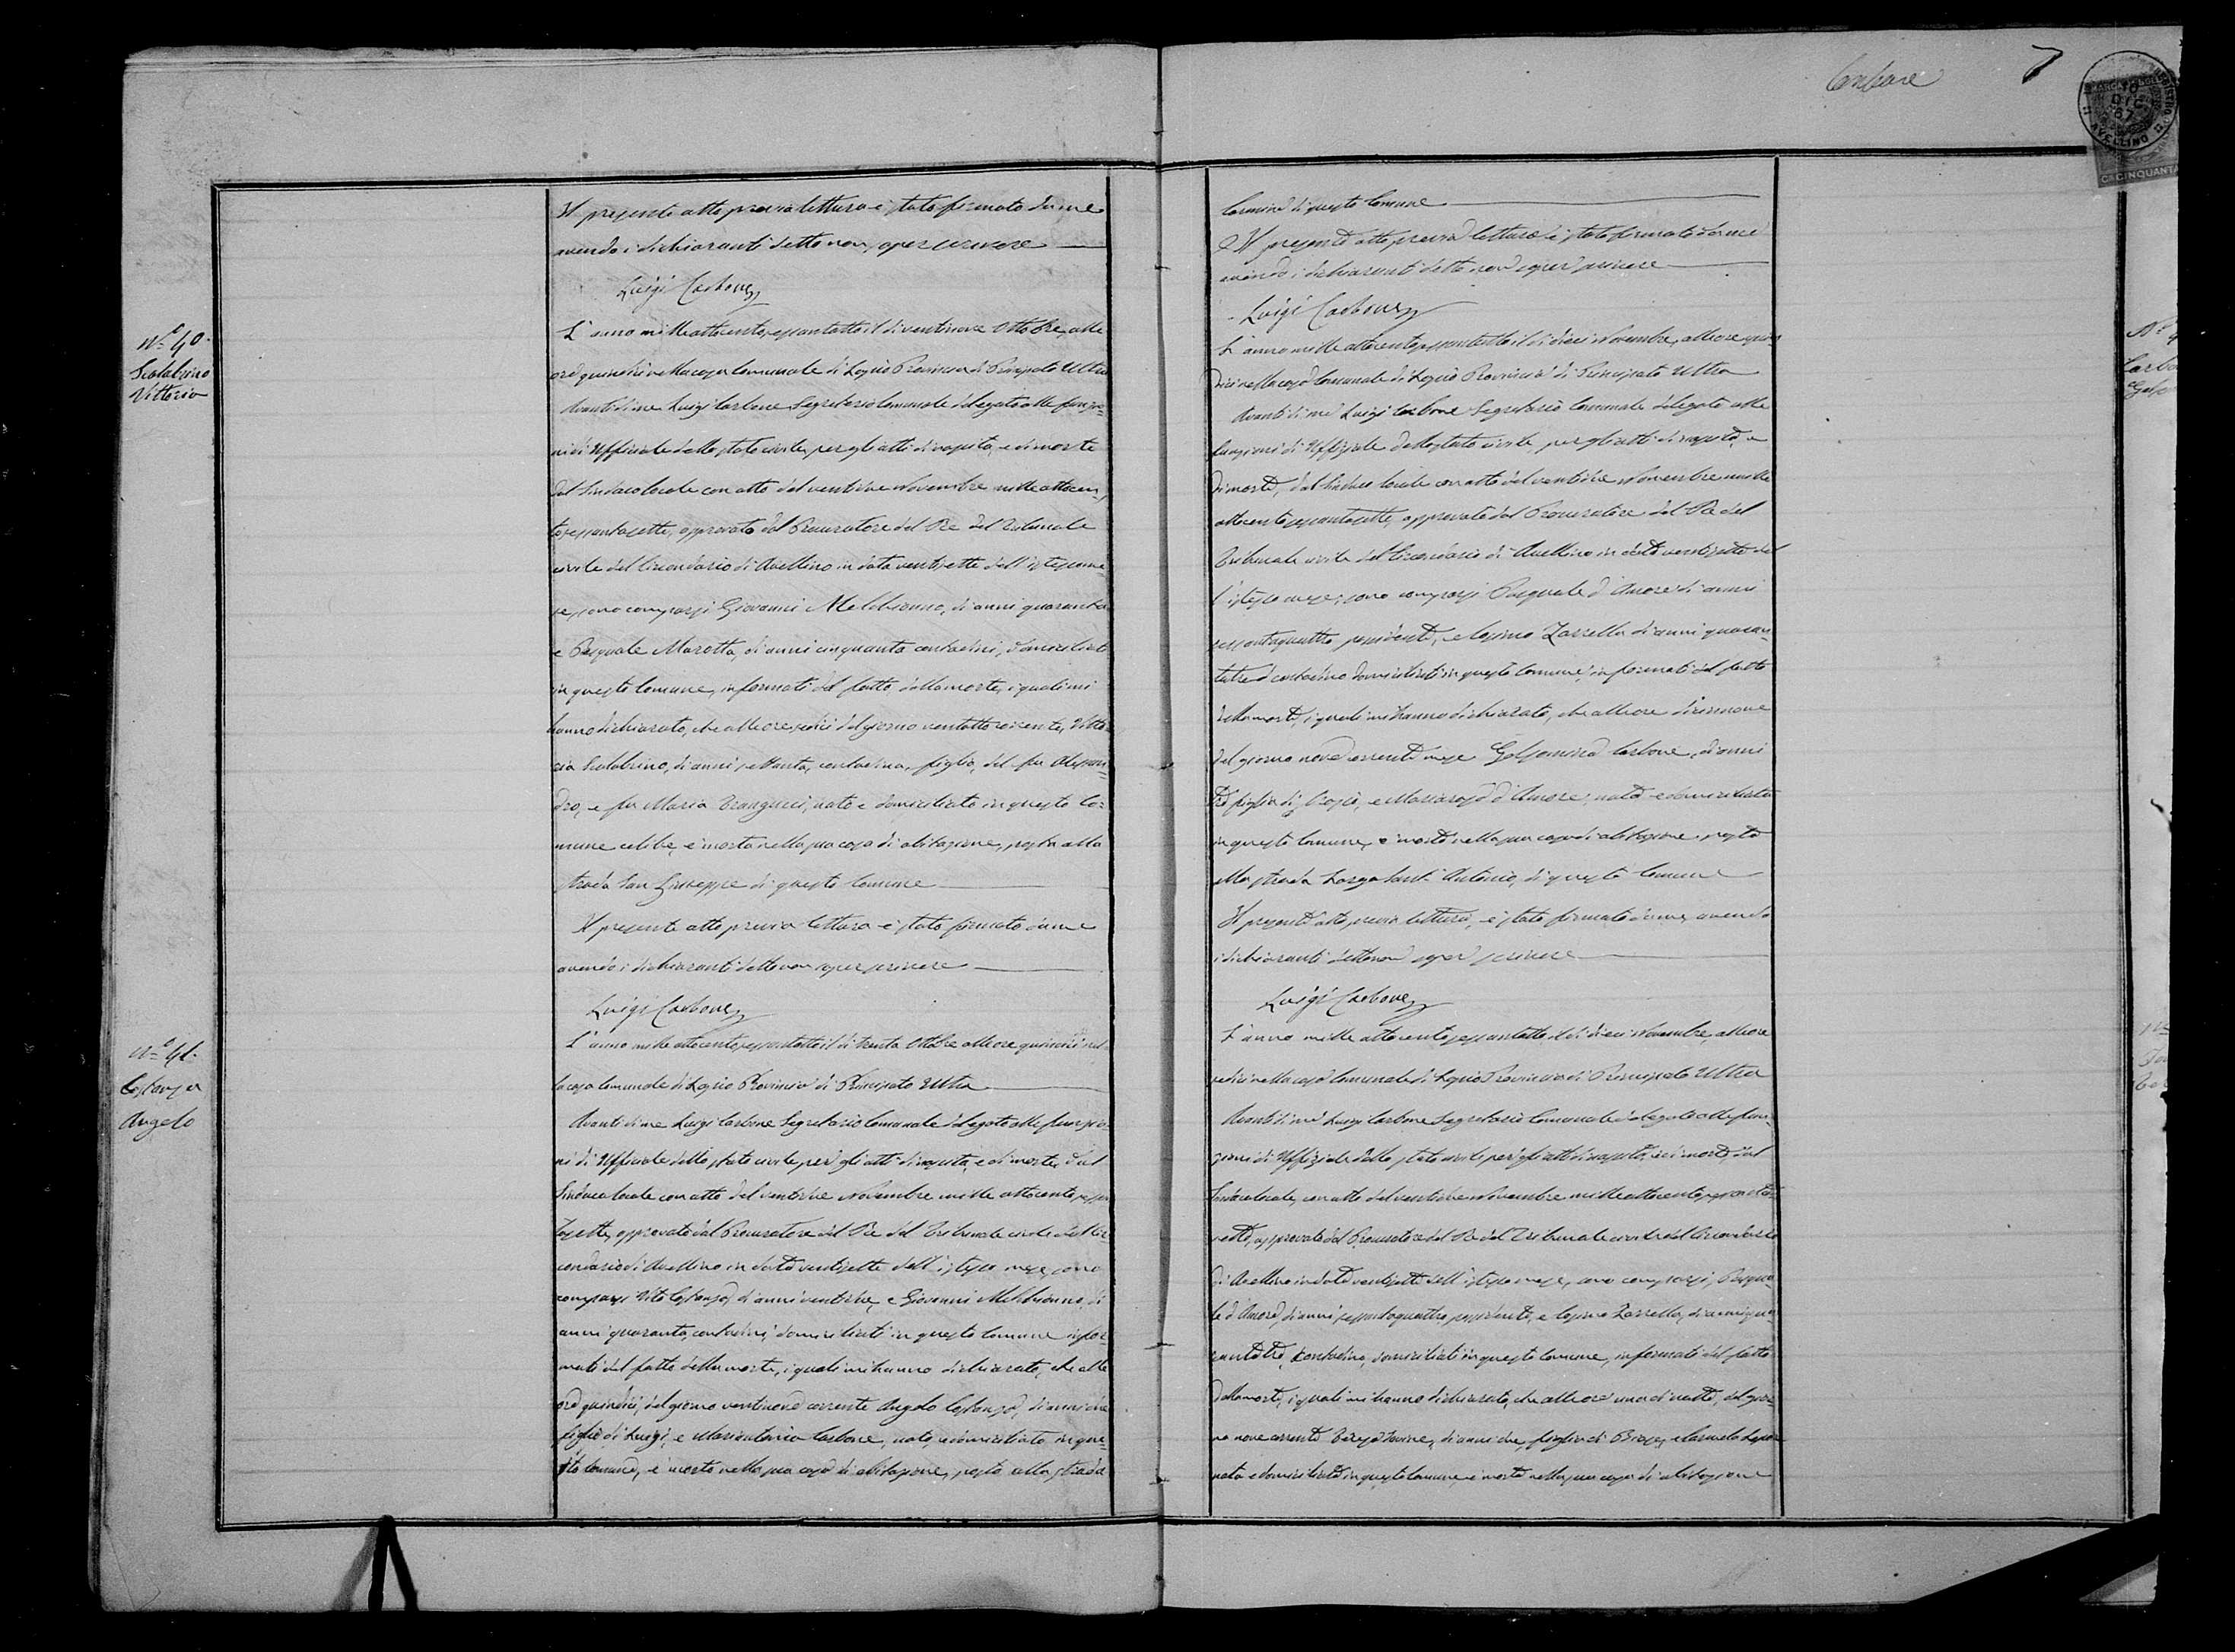 Il presente atto previa lettura è stato firmato da me
avendo i dichiaranti detto non saper scrivere
Luigi Carbone
Nº 40.
Scolabrino
Vittoria
L'anno mille ottocento sessantotto il dì ventinove Ottobre, alle
ore quindici nella casa Comunale di Lapio Provincia di Principato Ultra
Avanti di me Luigi Carbone Segretario Comunale delegato alle funzio=
ni di Uffiziale dello stato civile per gli atti di nascita, e di morte
dal Sindaco locale con atto del ventitre Novembre mille ottocen=
tosessantasette, approvato dal Procuratore del Re del Tribunale
civile del Circondario di Avellino in data ventisette dell'istesso me=
se, sono comparsi Giovanni Melchionno, di anni quaranta
e Pasquale Marotta, di anni cinquanta contadini, domiciliati
in questo Comune, informati del fatto della morte, i quali mi
hanno dichiarato, che alle ore sedici del giorno ventotto corrente, Vitto=
ria Scolabrino, di anni settanta, contadina, figlia, del fu Alessan=
dro, e fu Maria Trangucci, nata e domiciliata in questo Co=
mune celibe, è morta nella sua casa di abitazione, posta alla
strada San Giuseppe di questo Comune
Il presente atto previa lettura è stato firmato da me
avendo i dichiaranti detto non saper scrivere
Luigi Carbone
Nº 41.
Costanza
Angelo
L'anno mille ottocento sessantotto il dì trenta Ottobre alle ore quindici nel=
la casa Comunale di Lapio Provincia di Principato Ultra
Avanti di me Luigi Carbone Segretario Comunale delegato alle funzio=
ni di Uffiziale dello stato civile per gli atti di nascita, e di morte, dal
Sindaco locale con atto del ventitre Novembre mille ottocento sessan
tasette, approvato dal Procuratore del Re del Tribunale civile del Cir=
condario di Avellino in data ventisette dell'istesso mese, sono
comparsi Vito Costanza, di anni ventitre, e Giovanni Melchionno, di
anni quaranta, contadini, domiciliati in questo Comune infor=
mati del fatto della morte, i quali mi hanno dichiarato, che alle
ore quindici, del giorno ventinove corrente Angelo Costanza, di anni
figlio di Luigi, e Mariantonia Carbone, nato, e domiciliato in que=
sto Comune, è morto nella sua casa di abitazione, posta alla strada
Carbone
7
AVELLINO
Cᴵ CINQUANTA
Carmine di questo Comune
Il presente atto previa lettura è stato firmato da me
avendo i dichiaranti detto non saper scrivere
Luigi Carbone
L'anno mille ottocento sessantotto il dì dieci Novembre, alle ore quin=
dici nella casa Comunale di Lapio Provincia di Principato Ultra
Avanti di me Luigi Carbone Segretario Comunale delegato alle
funzioni di Uffiziale dello stato civile, per gli atti di nascita, e
di morte, dal Sindaco locale con atto del ventitre Novembre mille
ottocento sessantasette, approvato dal Procuratore del Re del
Tribunale civile del Circondario di Avellino in data ventisette del
l'istesso mese, sono comparsi Pasquale d'Amore di anni
sessantaquattro possidente, e Cosimo Zarrella di anni quaran=
tatre contadino domiciliati in questo Comune, informati del fatto
della morte, i quali mi hanno dichiarato, che alle ore diecinnove
del giorno nove corrente mese Gelsomina Carbone, di anni
tre figlia di Biagio, e Mariarosa d'Amore, nata e domiciliata
in questo Comune, è morta nella sua casa di abitazione, posta
alla strada Largo Sant'Antonio, di questo Comune
Il presente atto previa lettura, è stato firmato da me, avendo
i dichiaranti detto non saper scrivere
Luigi Carbone
L'anno mille ottocento sessantotto, il dì dieci Novembre, alle ore
sedici nella casa Comunale di Lapio Provincia di Principato Ultra
Avanti di me Luigi Carbone Segretario Comunale delegato alle fun=
zioni di Uffiziale dello stato civile per gli atti di nascita, e di morte, dal
Sindaco locale, con atto del ventitre Novembre mille ottocento sessanta
sette, approvato dal Procuratore del Re del Tribunale civile del Circondario
di Avellino in data ventisette dell'istesso mese, sono comparsi, Pasqua=
le d'Amore, di anni sessantaquattro, possidente, e Cosimo Zarrella, di anni qua=
rantatre, contadino, domiciliati in questo Comune, informati del fatto
della morte, i quali mi hanno dichiarato, che alle ore una di notte, del gior=
no nove corrente Teresa Iovine, di anni due, figlia di Biase, e Carmela
nata e domiciliata in questo Comune, è morta nella sua casa di abitazione